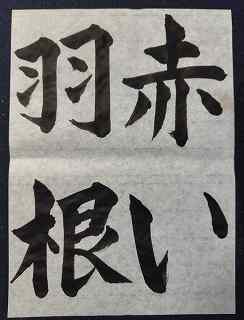 赤い
羽根